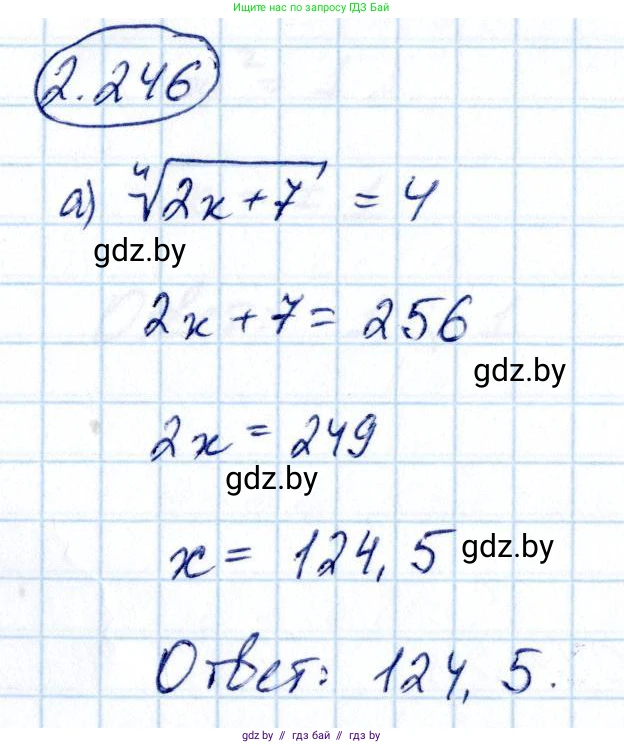 Ищите нас по запросу ГДЗ Бай
2.246
а) ∜(2x+7) = 4
gdz.by
2x + 7 = 256
gdz.by
2x = 249
gdz.by
x = 124,5
gdz.by
Ответ: 124,5.
gdz.by // гдз бай // gdz by